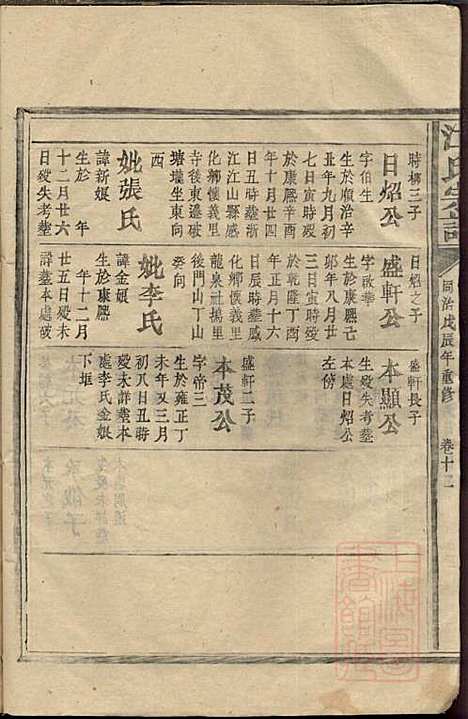 江氏宗譜
同治戊辰年重修
卷十三
時榜三子
日炤公
字伯生
生於順治辛
丑年九月初
七日寅時殁
於康熙辛酉
年十月廿四
日丑時葬浙
江江山縣感
化鄉懷義里
寺後東邊破
塘壠坐東向
西
妣張氏
諱新娘
生於 年
十二月廿六
日殁失考葬
日炤之子
盛軒公
字啟華
生於康熙己
卯年八月廿
三日寅時殁
於乾隆丁酉
年正月十六
日辰時葬鳳
化鄉懷義里
龍泉社搗里
後門山丁山
癸向
妣李氏
諱金娘
生於康熙
年十二月
廿五日殁未
詳葬本處破
盛軒長子
本顯公
生殁失考葬
本處日炤公
左傍
盛軒二子
本茂公
字帝三
生於雍正丁
未年又三月
初八日丑時
殁未詳葬本
處李氏金娘
下堆